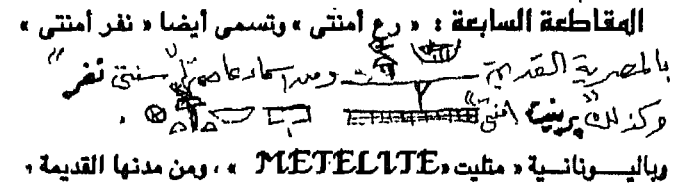 المقاطعة السابعة : « رع أمنتى » وتسمى أيضا « نفر أمنتى »
بالمصرية القديمة ومن اسماء عاصمتها "سنتى نفر"
وكذلك "برنيت امنتى" .
وباليونانية « متليت » METELITE ، ومن مدنها القديمة ،